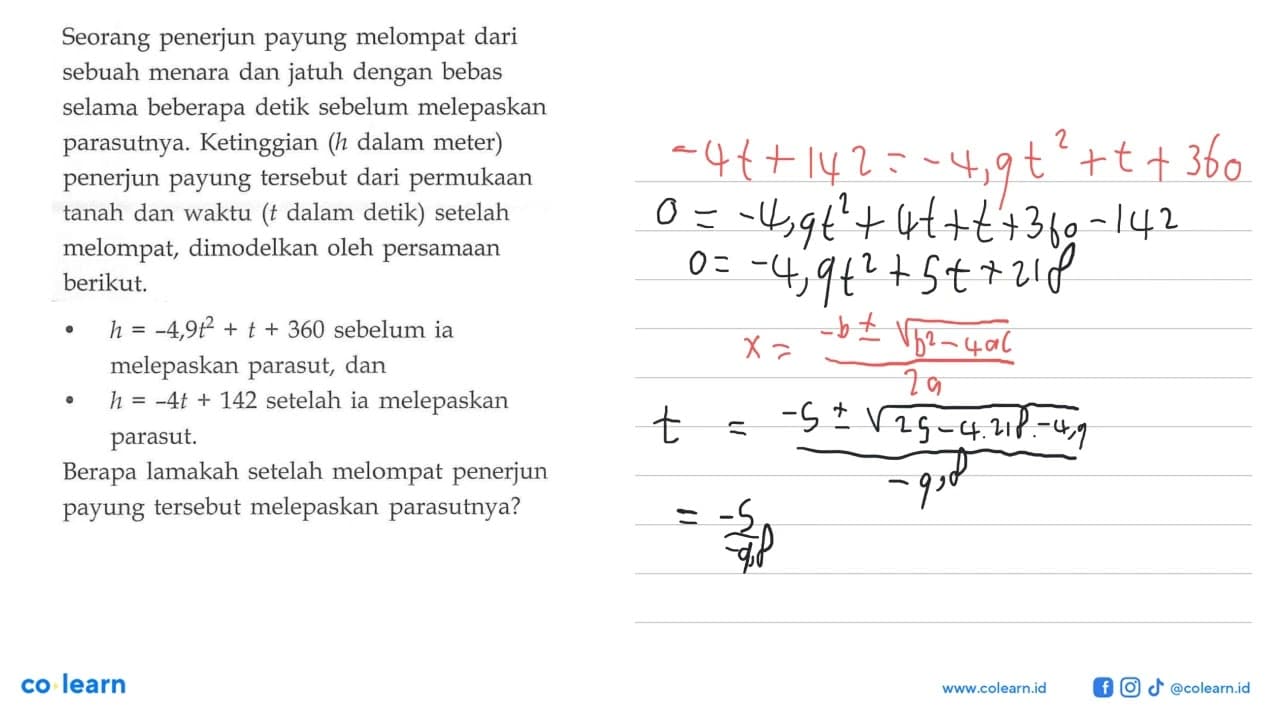 Seorang penerjun payung melompat dari
sebuah menara dan jatuh dengan bebas
selama beberapa detik sebelum melepaskan
parasutnya. Ketinggian (h dalam meter)
penerjun payung tersebut dari permukaan
tanah dan waktu (t dalam detik) setelah
melompat, dimodelkan oleh persamaan
berikut.
• h = –4,9t² + t + 360 sebelum ia
melepaskan parasut, dan
• h = –4t + 142 setelah ia melepaskan
parasut.
Berapa lamakah setelah melompat penerjun
payung tersebut melepaskan parasutnya?
-4t + 142 = -4,9t² + t + 360
0 = -4,9t² + 4t + t + 360 - 142
0 = -4,9t² + 5t + 218
x = (-b ± √(b² - 4ac)) / 2a
t = (-5 ± √(25 - 4.218.-4,9)) / -9,8
= -5 / -9,8
co learn
www.colearn.id
@colearn.id